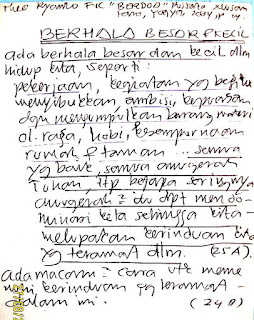 BERHALA BESAR & KECIL
ada berhala besar dan kecil dlm
hidup kita, seperti :
pekerjaan, kegiatan yg begitu
menyibukkan, ambisi, kepuasan
dgn mengumpulkan barang materi
ol. raga, hobi, kesempurnaan
rumah & taman ... semua
yg baik, semua anugerah
Tuhan, ttp betapa seringnya
anugerah² itu dpt mendo-
minasi kita sehingga kita
melupakan kerinduan kita
yg teramat dlm. (25A).
ada macam² cara utk meme
nuhi kerinduan yg teramat -
dalam ini. (24B)